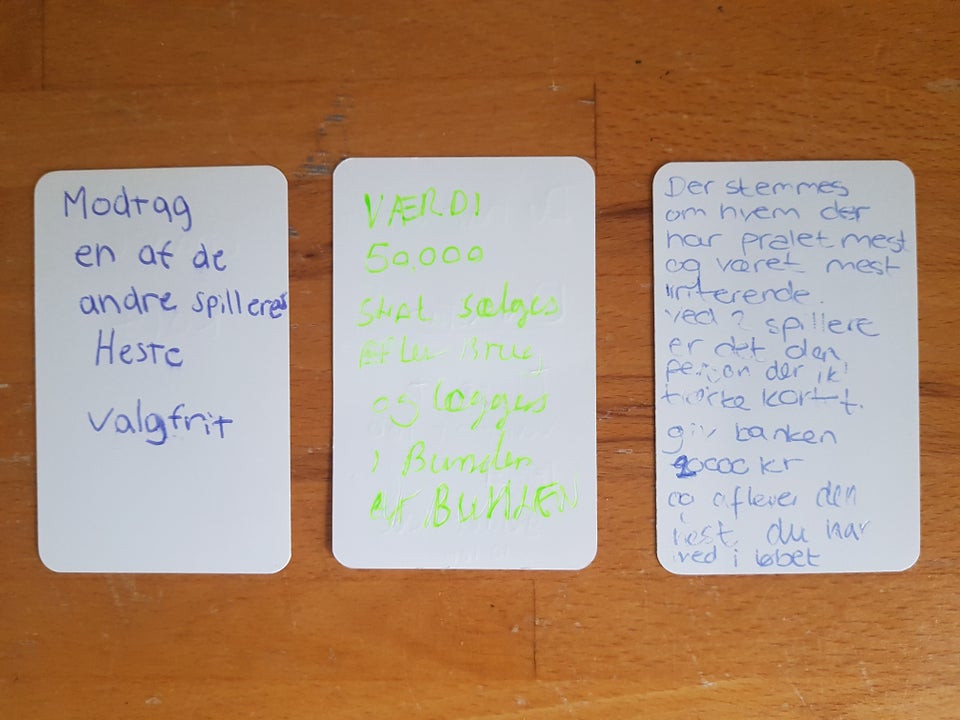 Modtag
en af de
andre spilleres
Heste
valgfrit
VÆRDI
50.000
Skal sælges
Efter Brug
og lægges
i Bunden
Af BUNKEN
Der stemmes
om hvem der
har pralet mest
og været mest
irriterende.
ved 2 spillere
er det den
person der ik'
trækte kortet.
giv banken
0000 kr
og aflever den
hest du har
ved i løbet